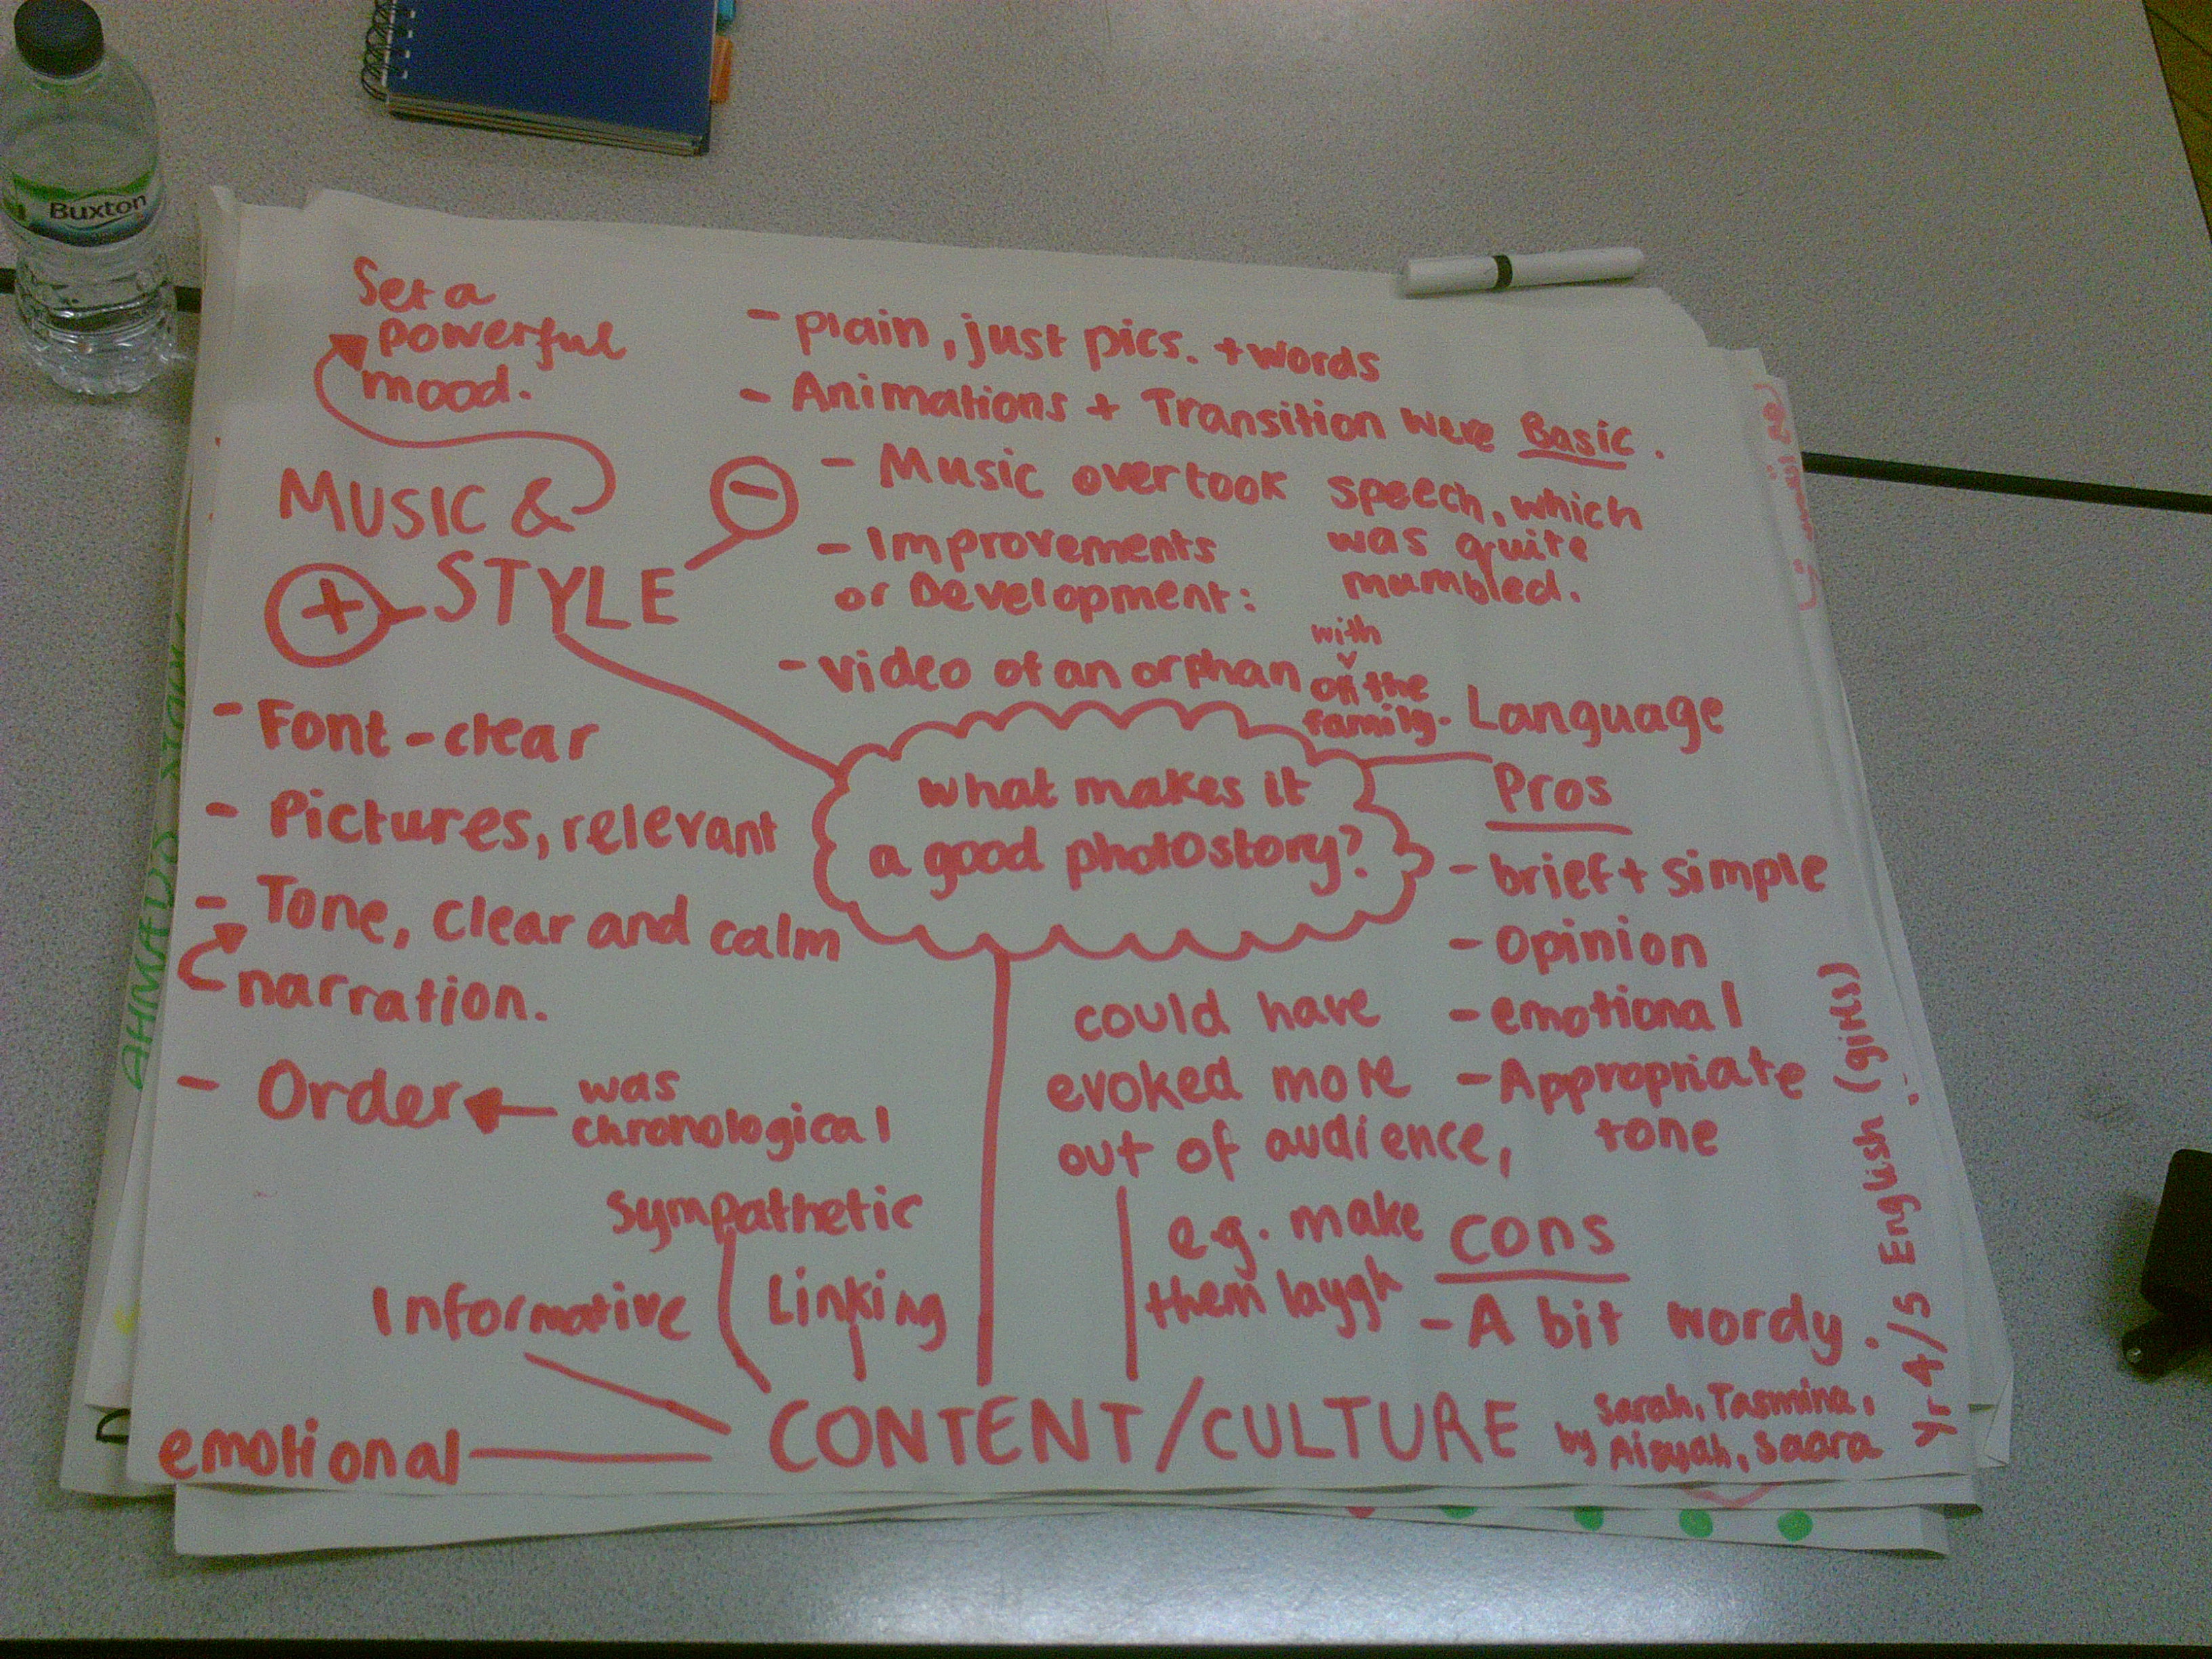 Buxton
Set a
powerful
mood.
MUSIC &
+ STYLE -
- plain, just pics. + words
- Animations + Transition were Basic.
- Music overtook speech, which
was quite
mumbled.
- Improvements
or Development:
- video of an orphan with
the
family.
- Font - clear
- Pictures, relevant
- Tone, clear and calm
narration.
- Order
was
chronological
what makes it
a good photostory?
Language
Pros
- brief + simple
- Opinion
- emotional
- Appropriate
tone
cons
- A bit wordy.
could have
evoked more
out of audience,
e.g. make
them laugh
Sympathetic
Informative
Linking
emotional
CONTENT/CULTURE
by Sarah, Tasmina,
Aisyah, Saara
Yr 4/5 English (girls)
AHMAD'S